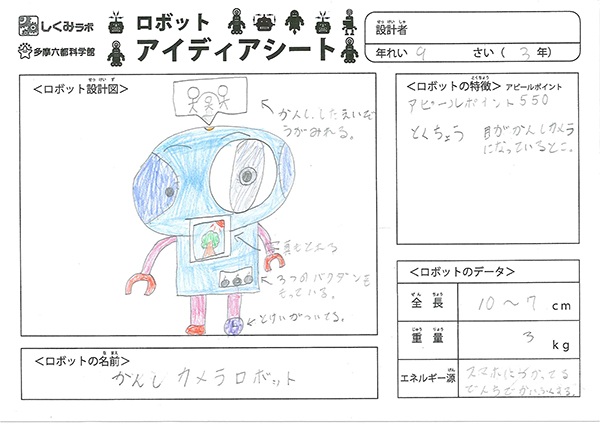 しくみラボ
多摩六都科学館
ロボット
アイディアシート
せっ けい しゃ
設計者
年れい 9 さい( 3 年)
せっ けい ず
<ロボット設計図>
かんし、したえいぞ
うがみれる。
写真もとれる
3つのバクダンを
もっている。
とけいがついてる。
とくちょう
<ロボットの特徴> アピールポイント
アピールポイント550
とくちょう 目がかんしカメラ
になっているとこ。
な まえ
<ロボットの名前>
かんし カメラロボット
<ロボットのデータ>
ぜん ちょう
全 長 10～7 cm
じゅう りょう
重 量 3 kg
げん
エネルギー源 スマホにつかてる
でんちで